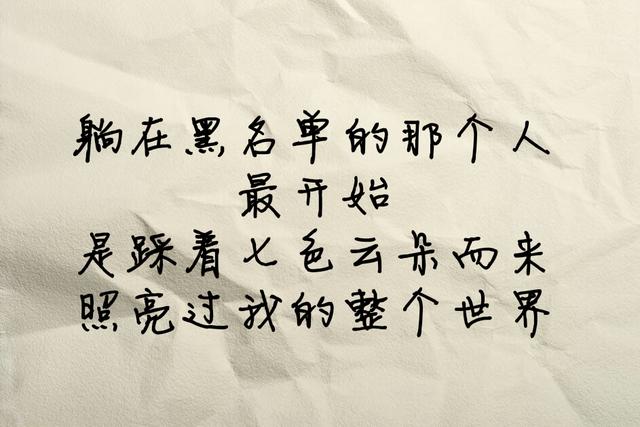 躺在黑名单的那个人
最开始
是踩着七色云朵而来
照亮过我的整个世界